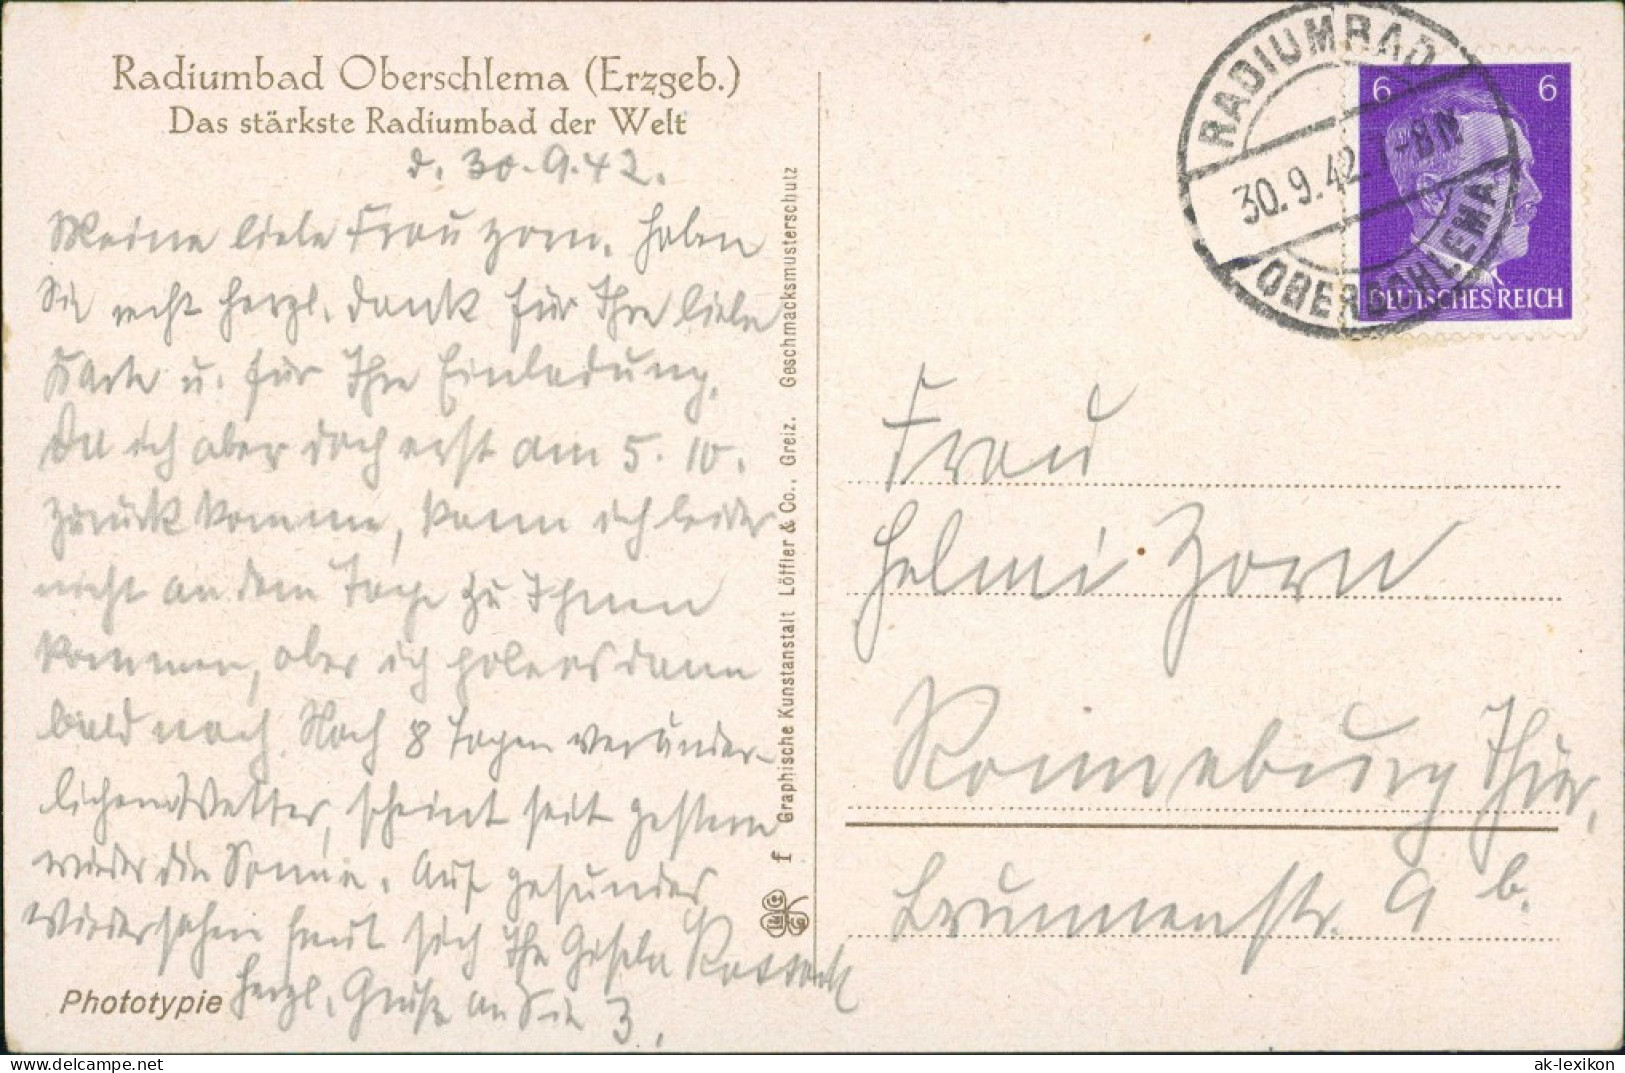 Radiumbad Oberschlema (Erzgeb.)
Das stärkste Radiumbad der Welt
d. 30.9.42.
Meine liebe Frau Zorn. Haben
Sie recht herzl. Dank für Ihre liebe
Karte u. für Ihre Einladung.
Da ich aber doch erst am 5. 10.
zurück komme, kann ich leider
nicht an dem Tage zu Ihnen
kommen, aber ich hole es dann
bald nach. Nach 8 Tagen veränder-
lichem Wetter, scheint seit gestern
wieder die Sonne. Auf gesundes
Wiedersehen freut sich Ihre Gisela
Herzl. Grüße an Sie 3.
Phototypie
f Graphische Kunstanstalt Löffler & Co., Greiz. Geschmacksmusterschutz
RADIUMBAD
30.9.42.7-8N
OBERSCHLEMA
6 6
DEUTSCHES REICH
Frau
Helmi Zorn
Ronneburg Thür.
Brunnenstr. 9 b.
delcampe.net
ak-lexikon